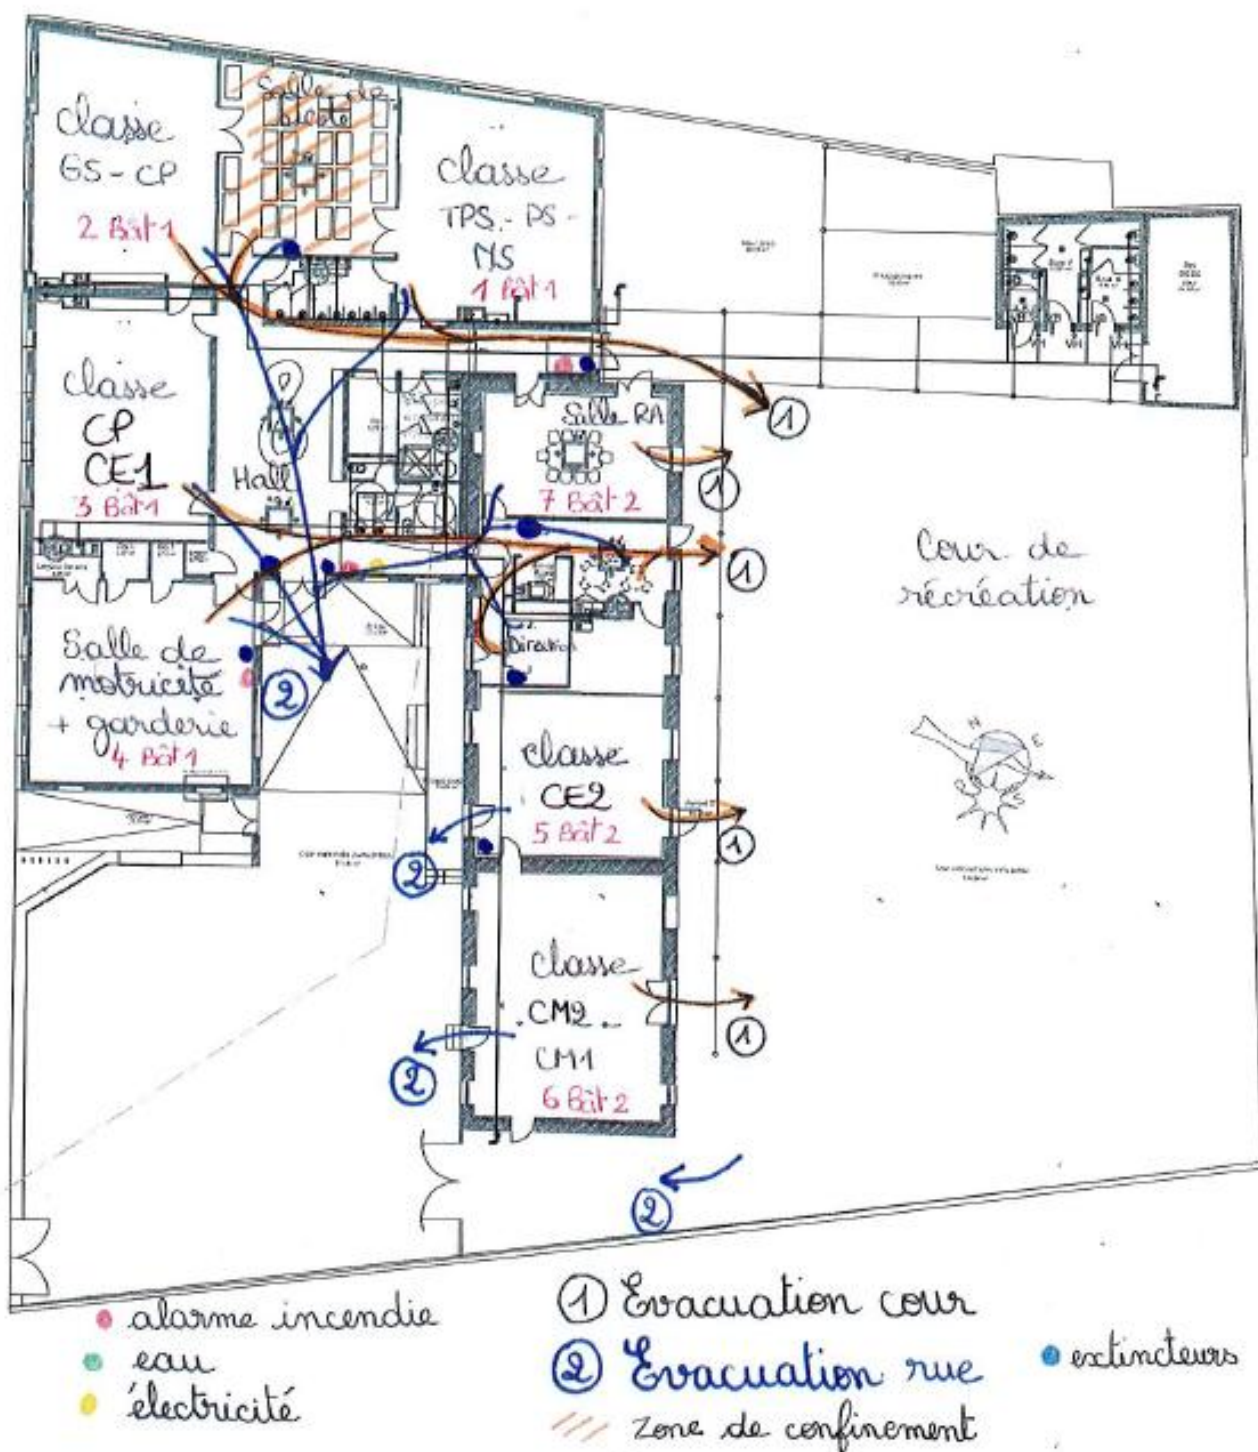 Classe
GS - CP
2 Bât 1
Salle de
sieste
Classe
TPS - PS -
MS
1 Bât 1
Classe
CP
CE1
3 Bât 1
Hall
Salle RA
7 Bât 2
1
1
1
Cour de
récréation
N
E
S
O
Salle de
motricité
+ garderie
4 Bât 1
2
Direction
Classe
CE2
5 Bât 2
1
2
Classe
CM2
CM1
6 Bât 2
1
2
2
alarme incendie
eau
électricité
1 Evacuation cour
2 Evacuation rue
zone de confinement
extincteurs